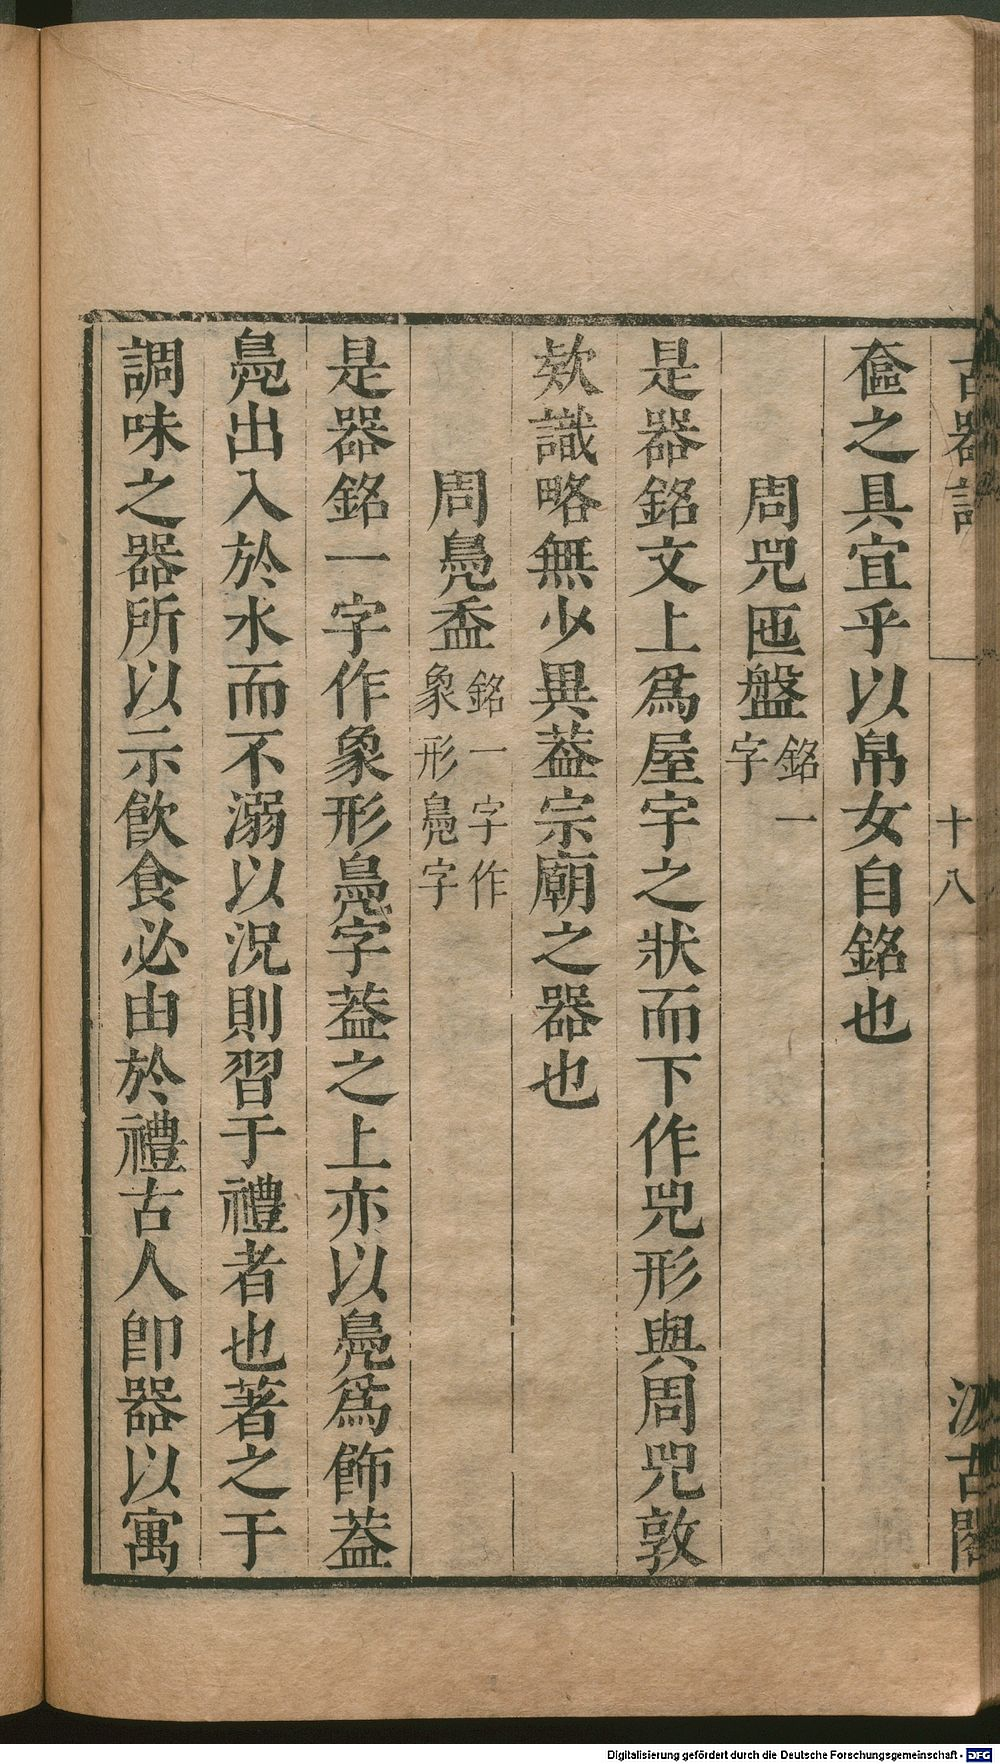 古器評
十八
汲古閣
奩之具宜乎以帛女自銘也
周兕匜盤銘一字
是器銘文上爲屋宇之狀而下作兕形與周兕敦
欵識略無少異葢宗廟之器也
周鳧盉銘一字作象形鳧字
是器銘一字作象形鳧字葢之上亦以鳧爲飾葢
鳧出入於水而不溺以況則習于禮者也著之于
調味之器所以示飲食必由於禮古人卽器以寓
Digitalisierung gefördert durch die Deutsche Forschungsgemeinschaft - DFG